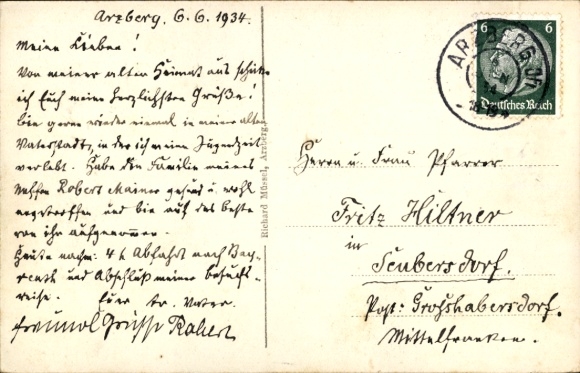 Arzberg, 6.6.1934.
Meine Lieben!
Von meiner alten Heimat aus schicke
ich Euch meine herzlichsten Grüße!
Bin gerne wieder einmal in meiner alten
Vaterstadt, in der ich meine Jugendzeit
verlebt. Habe den Familie meines
Neffen Robert Mainer gesund u. wohl
angetroffen und bin auf das beste
von ihr aufgenommen.
Heute nachm. 4 h Abfahrt nach Bay-
reuth und Abschluß meiner Besuchs-
reise. Euer tr. Vater.
Grüße Robert
Richard Müssel, Arzberg.
ARZBERG
6 6
Deutsches Reich
Herrn u. Frau Pfarrer
Fritz Hiltner
in
Seubersdorf.
Post: Großhabersdorf.
Mittelfranken.